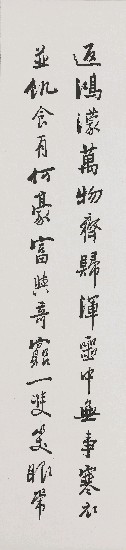 返鴻濛萬物齊歸渾噩中無事寒衣
並飢食有何豪富與奇窮一雙笑眼常